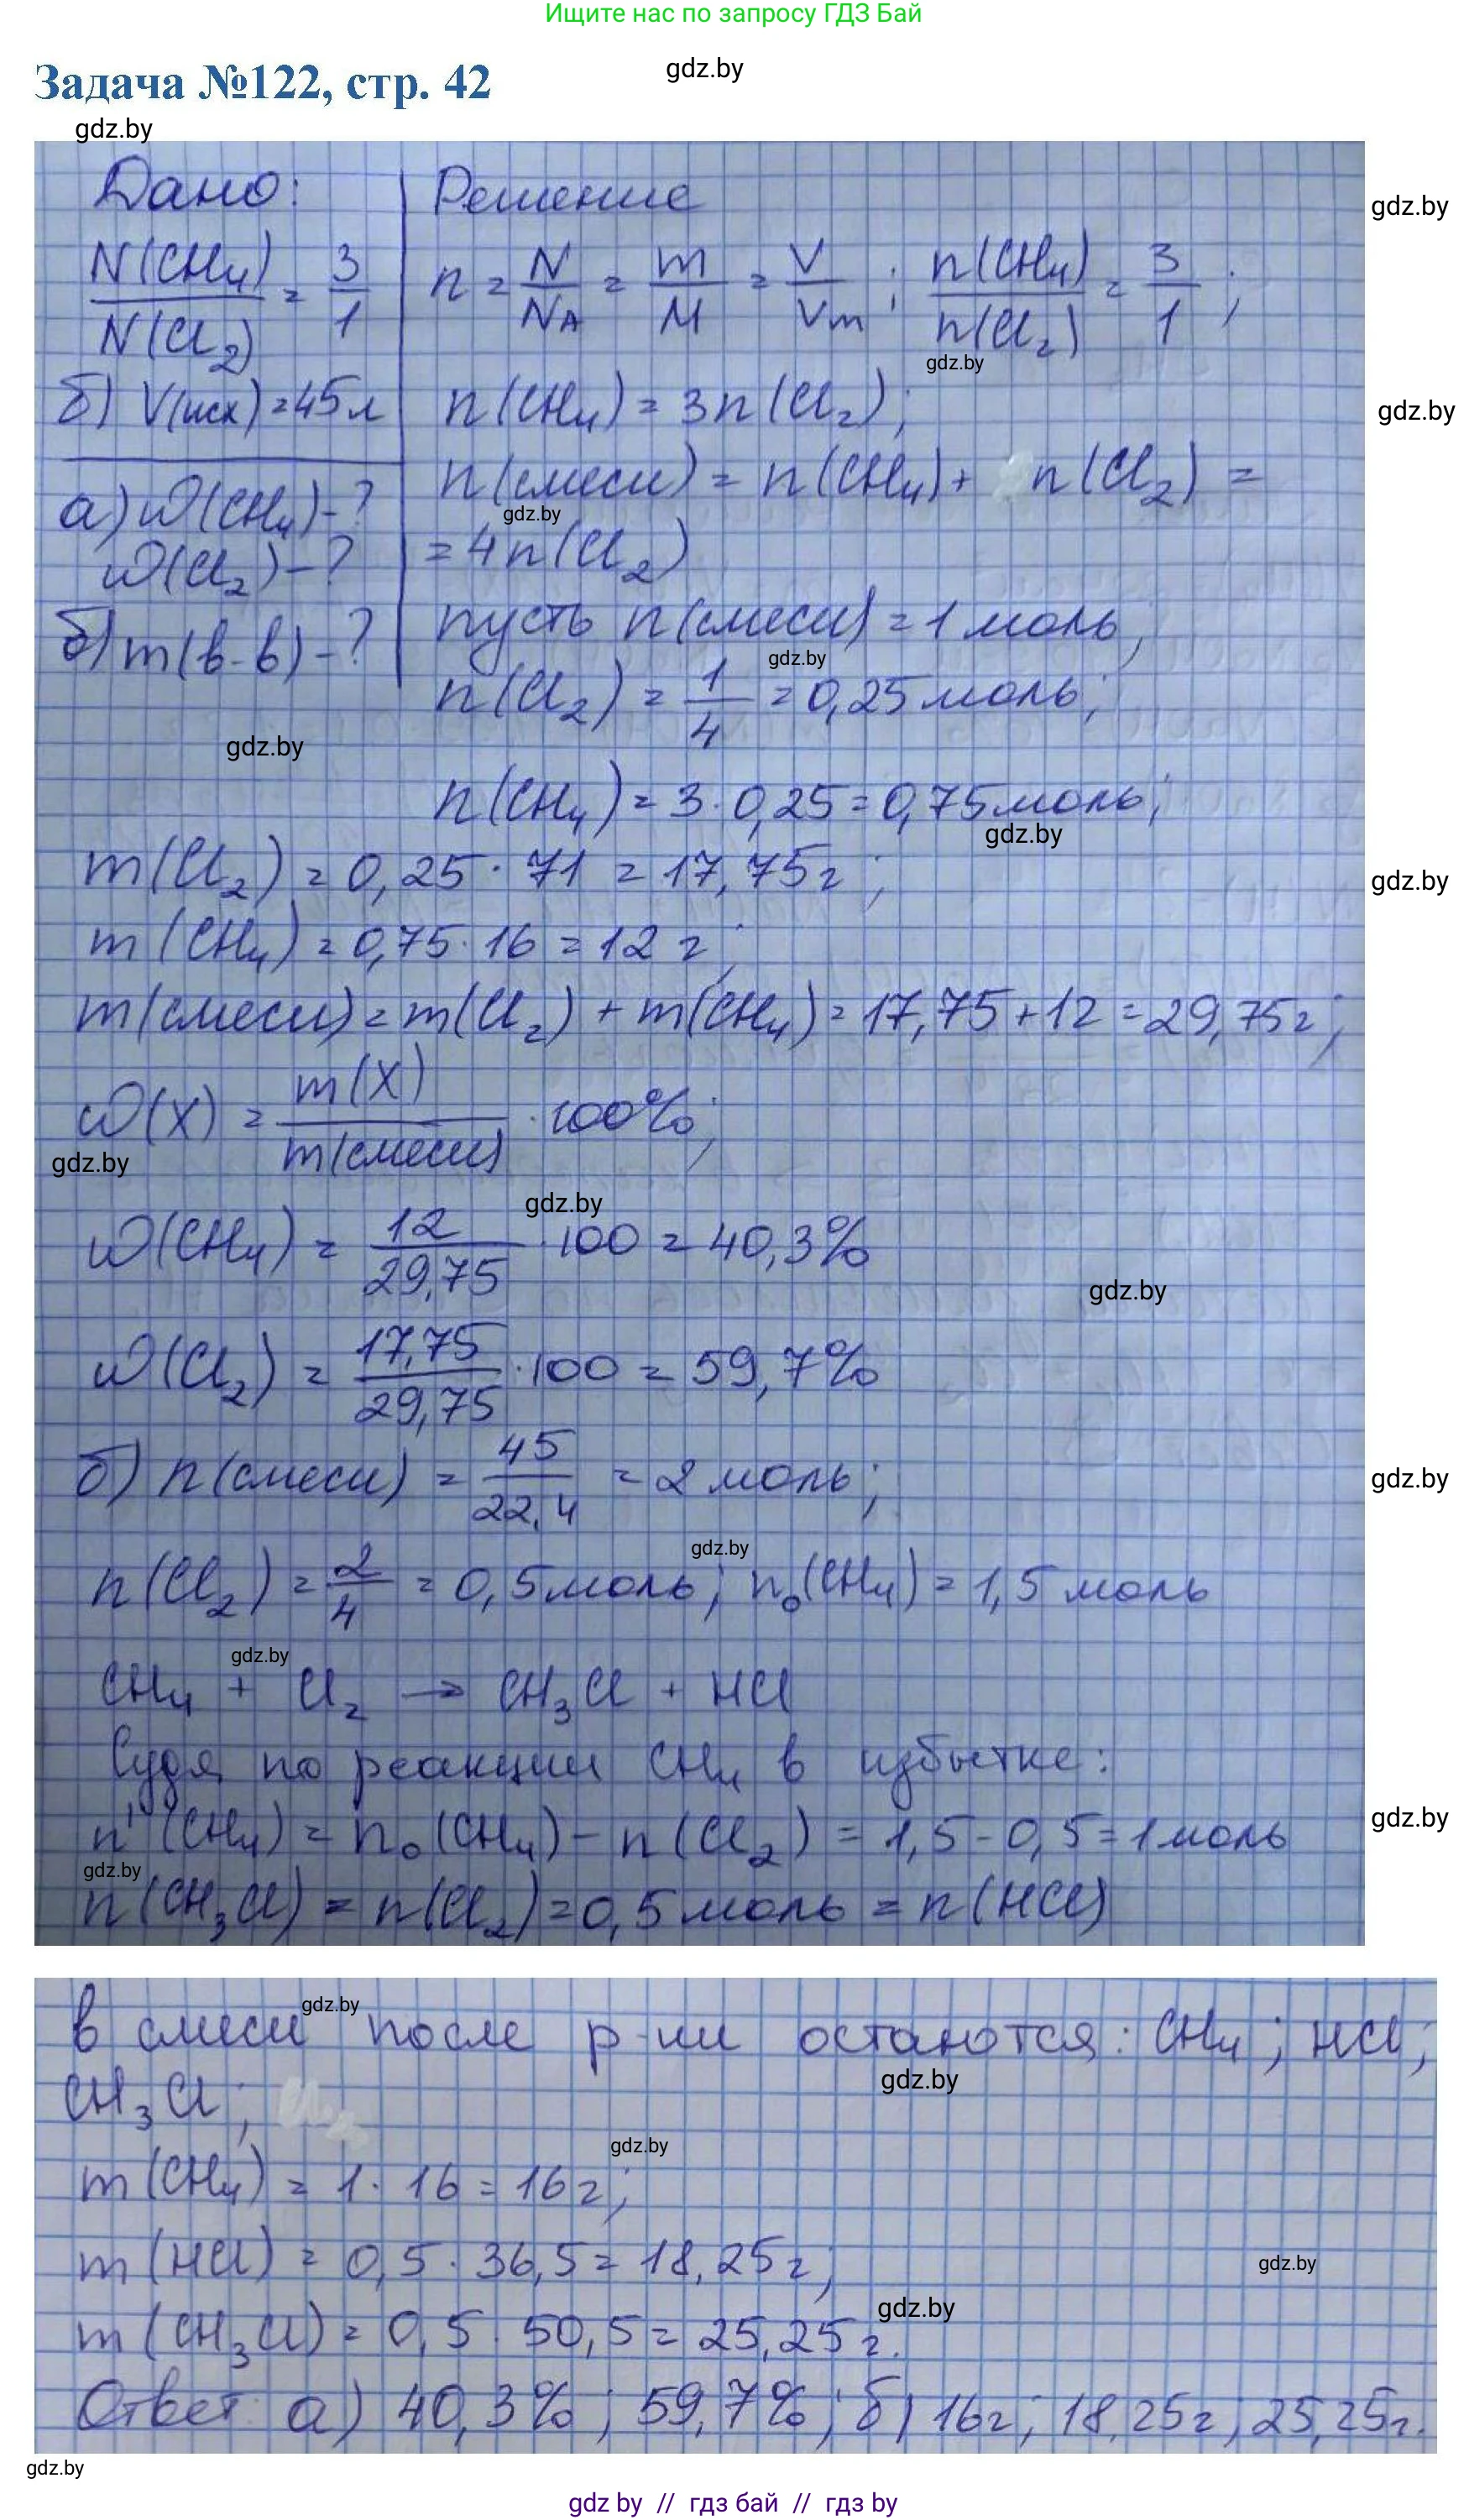 Ищите нас по запросу ГДЗ Бай
Задача №122, стр. 42
gdz.by
gdz.by
Дано: Решение
gdz.by
N(CH₄)/N(Cl₂) = 3/1 n = N/N_A = m/M = V/Vm; n(CH₄)/n(Cl₂) = 3/1;
gdz.by
б) V(исх) = 45 л n(CH₄) = 3n(Cl₂);
gdz.by
а) ω(CH₄) - ? n(смеси) = n(CH₄) + n(Cl₂) =
gdz.by
ω(Cl₂) - ? = 4n(Cl₂)
б) m(в-в) - ? пусть n(смеси) = 1 моль;
gdz.by
n(Cl₂) = 1/4 = 0,25 моль;
gdz.by
n(CH₄) = 3 · 0,25 = 0,75 моль;
gdz.by
m(Cl₂) = 0,25 · 71 = 17,75 г;
gdz.by
m(CH₄) = 0,75 · 16 = 12 г;
m(смеси) = m(Cl₂) + m(CH₄) = 17,75 + 12 = 29,75 г;
ω(X) = m(X)/m(смеси) · 100%;
gdz.by
gdz.by
ω(CH₄) = 12/29,75 · 100 = 40,3%
gdz.by
ω(Cl₂) = 17,75/29,75 · 100 = 59,7%
б) n(смеси) = 45/22,4 = 2 моль;
gdz.by
gdz.by
n(Cl₂) = 2/4 = 0,5 моль; n₀(CH₄) = 1,5 моль
gdz.by
CH₄ + Cl₂ → CH₃Cl + HCl
Судя по реакции CH₄ в избытке:
n'(CH₄) = n₀(CH₄) - n(Cl₂) = 1,5 - 0,5 = 1 моль
gdz.by
gdz.by
n(CH₃Cl) = n(Cl₂) = 0,5 моль = n(HCl)
gdz.by
в смеси после р-ии остаются: CH₄; HCl;
gdz.by
CH₃Cl;
gdz.by
m(CH₄) = 1 · 16 = 16 г;
m(HCl) = 0,5 · 36,5 = 18,25 г;
gdz.by
gdz.by
m(CH₃Cl) = 0,5 · 50,5 = 25,25 г.
Ответ: а) 40,3%; 59,7%; б) 16 г; 18,25 г; 25,25 г.
gdz.by
gdz by // гдз бай // гдз by